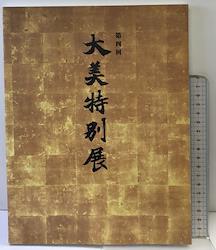 第四回
大美特別展